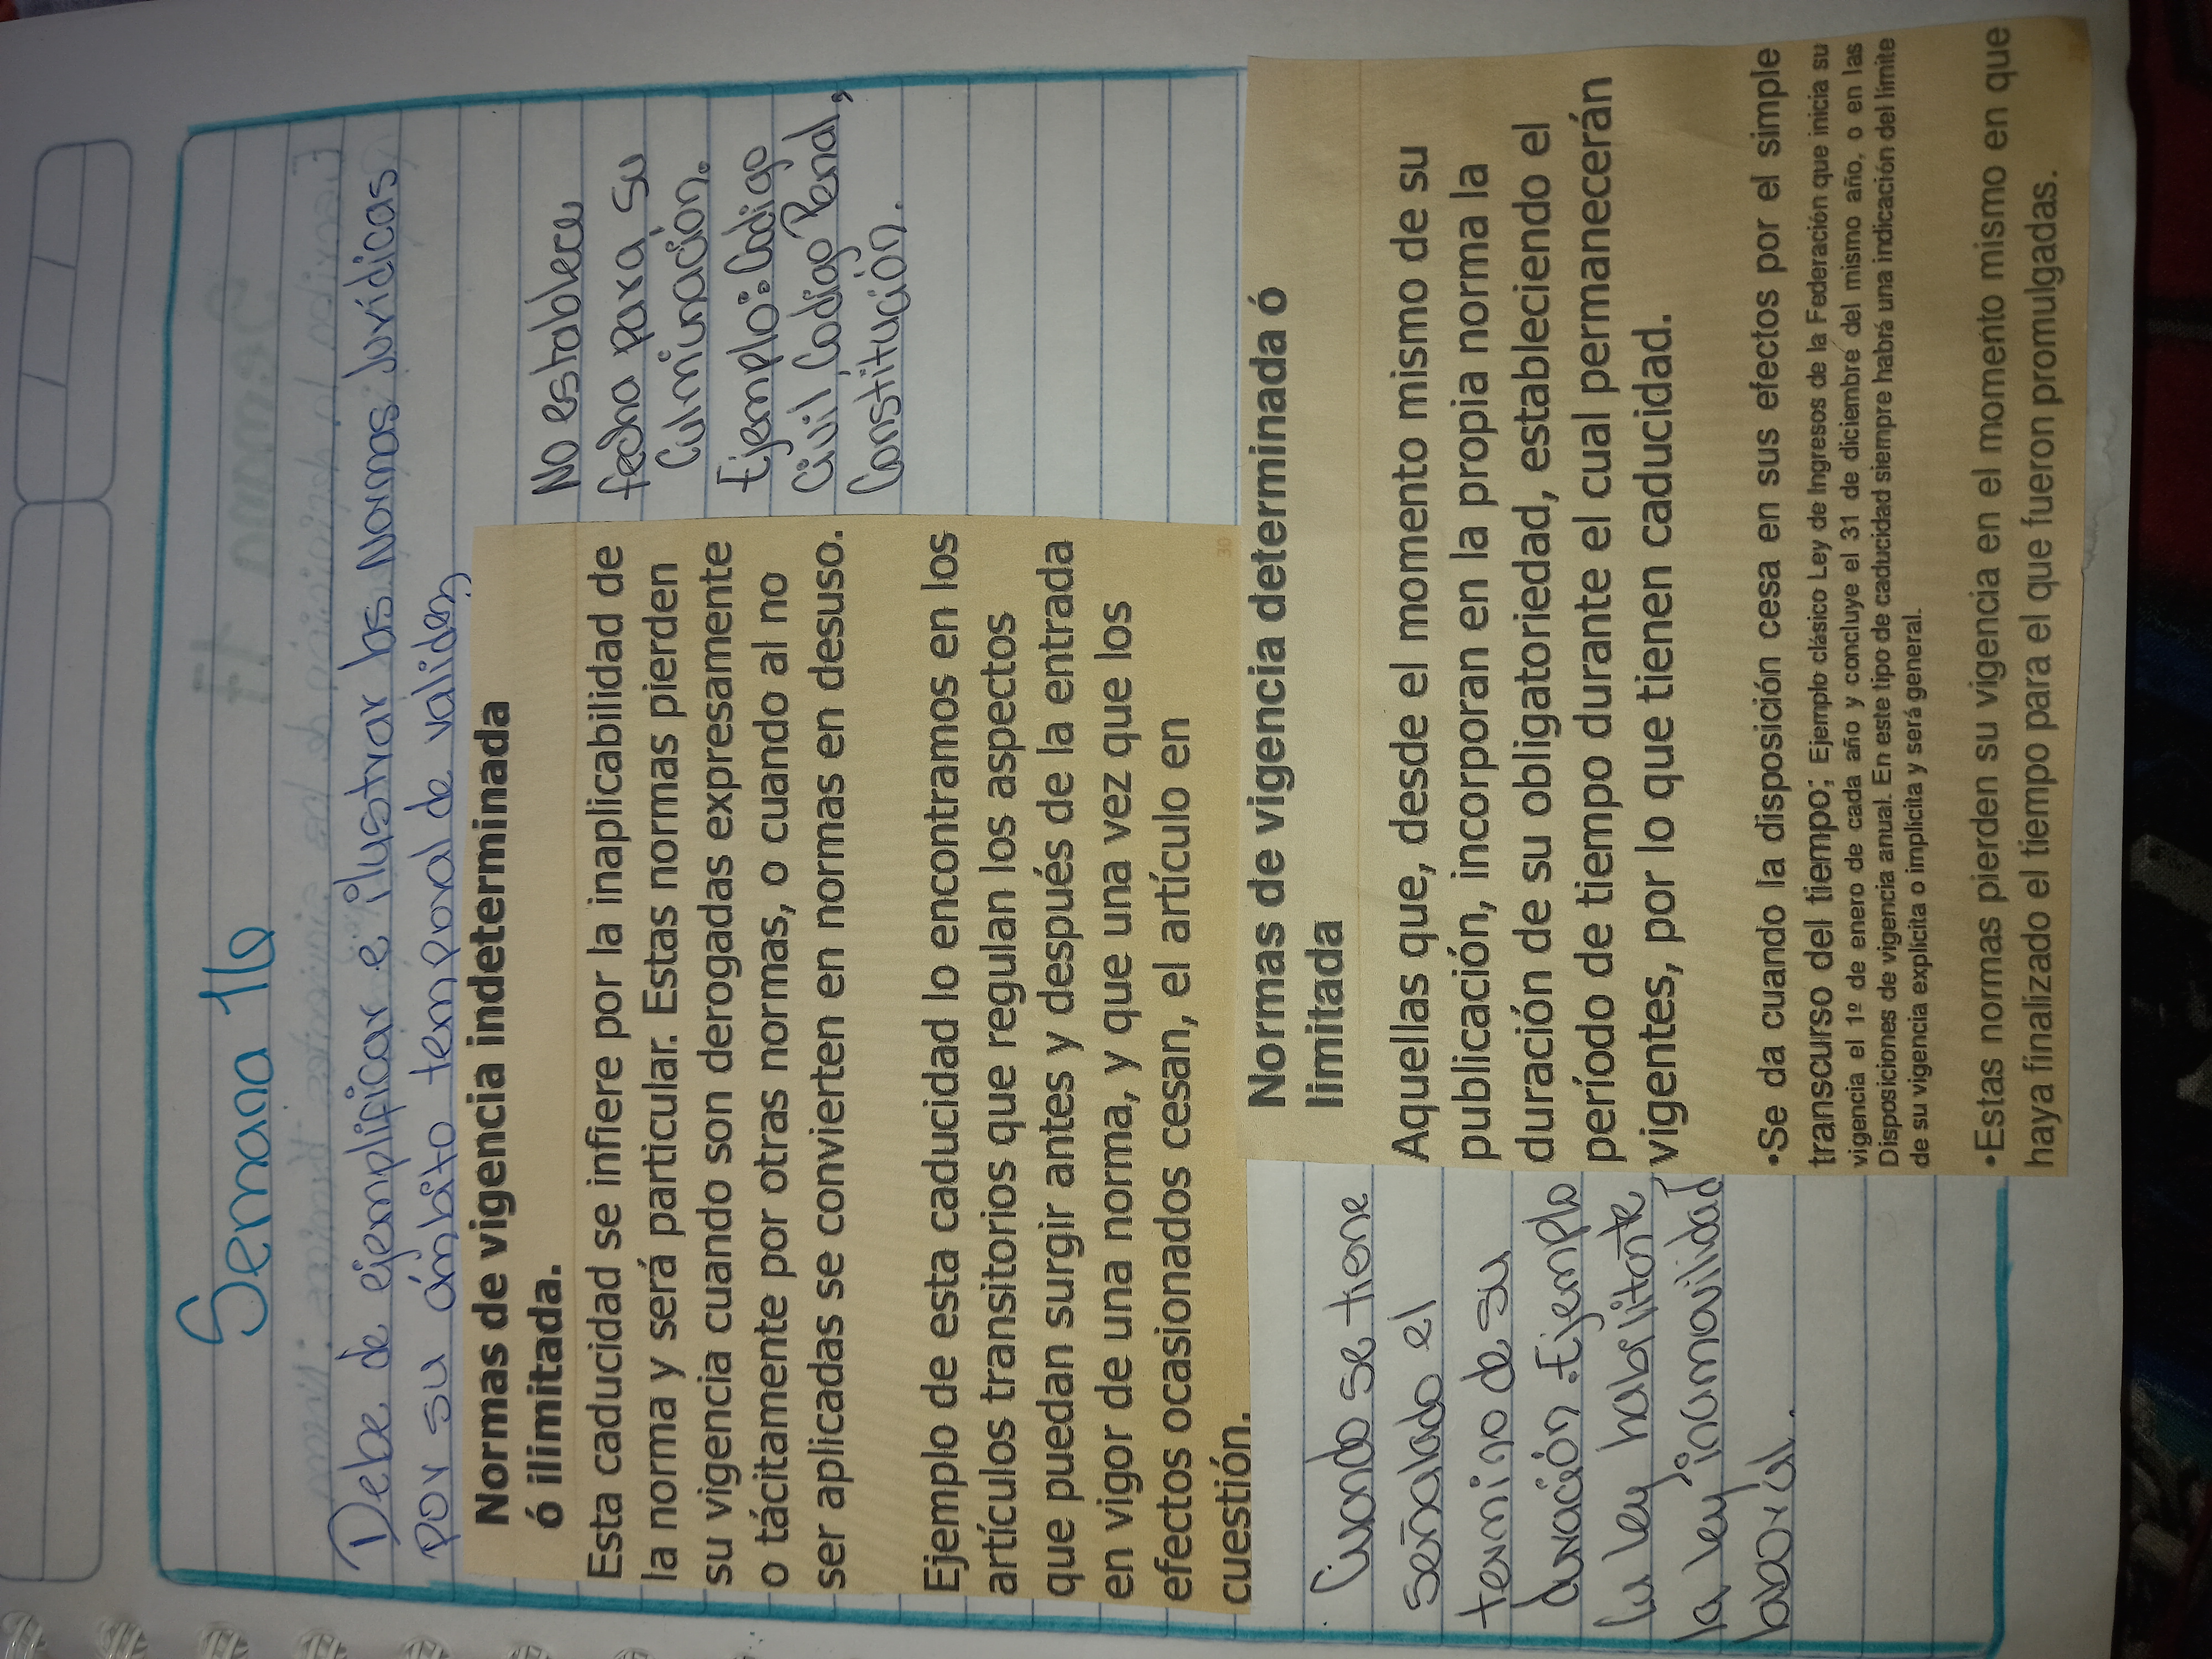 Semana 16
Debe de ejemplificar e ilustrar las Normas Jurídicas
por su ámbito temporal de validez
Normas de vigencia indeterminada
ó ilimitada.
Esta caducidad se infiere por la inaplicabilidad de
la norma y será particular. Estas normas pierden
su vigencia cuando son derogadas expresamente
o tácitamente por otras normas, o cuando al no
ser aplicadas se convierten en normas en desuso.
Ejemplo de esta caducidad lo encontramos en los
artículos transitorios que regulan los aspectos
que puedan surgir antes y después de la entrada
en vigor de una norma, y que una vez que los
efectos ocasionados cesan, el artículo en
cuestión.
30
No establece
fecha para su
Culminación.
Ejemplo: Codigo
Civil Codigo Penal,
Constitución.
Normas de vigencia determinada ó
limitada
Aquellas que, desde el momento mismo de su
publicación, incorporan en la propia norma la
duración de su obligatoriedad, estableciendo el
período de tiempo durante el cual permanecerán
vigentes, por lo que tienen caducidad.
•Se da cuando la disposición cesa en sus efectos por el simple
transcurso del tiempo; Ejemplo clásico Ley de Ingresos de la Federación que inicia su
vigencia el 1º de enero de cada año y concluye el 31 de diciembre del mismo año, o en las
Disposiciones de vigencia anual. En este tipo de caducidad siempre habrá una indicación del límite
de su vigencia explícita o implícita y será general.
•Estas normas pierden su vigencia en el momento mismo en que
haya finalizado el tiempo para el que fueron promulgadas.
Cuando se tiene
señalado el
termino de su
duración. Ejemplo
ley habilitante
la ley inamovilidad